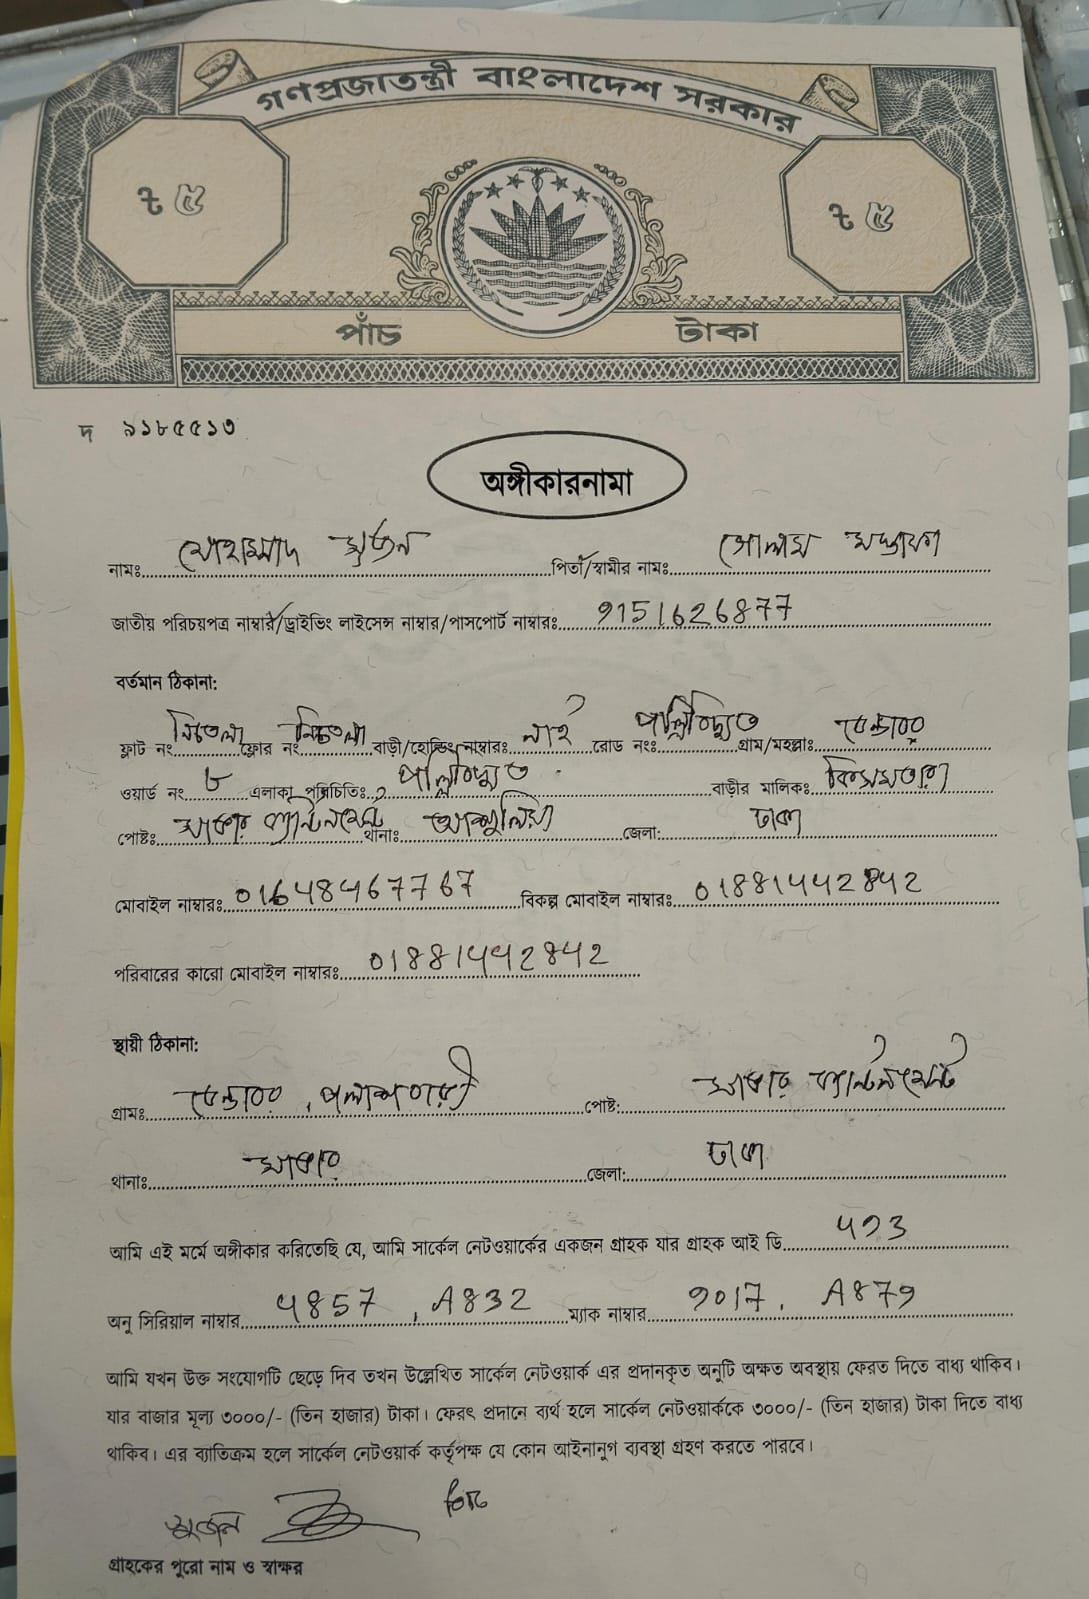 গণপ্রজাতন্ত্রী বাংলাদেশ সরকার
৳ ৫ ৳ ৫
পাঁচ টাকা
দ ৯১৮৫৫১৩
অঙ্গীকারনামা
নামঃ মোহাম্মাদ সুজন পিতা/স্বামীর নামঃ গোলাম মস্তফা
জাতীয় পরিচয়পত্র নাম্বার/ড্রাইভিং লাইসেন্স নাম্বার/পাসপোর্ট নাম্বারঃ 9151626877
বর্তমান ঠিকানা:
ফ্লাট নং নিচতলা ফ্লোর নং নিচতলা বাড়ী/হোল্ডিং নাম্বারঃ নাই রোড নংঃ পল্লিবিদ্যুত গ্রাম/মহল্লাঃ ডেন্ডাবর
ওয়ার্ড নং ৮ এলাকা পরিচিতিঃ পল্লিবিদ্যুত বাড়ীর মালিকঃ
পোষ্টঃ সাভার ক্যান্টনমেন্ট থানাঃ আশুলিয়া জেলা: ঢাকা
মোবাইল নাম্বারঃ 01648467767 বিকল্প মোবাইল নাম্বারঃ 01881442842
পরিবারের কারো মোবাইল নাম্বারঃ 01881442842
স্থায়ী ঠিকানা:
গ্রামঃ ডেন্ডাবর, পলাশবাড়ী পোষ্ট: সাভার ক্যান্টনমেন্ট
থানাঃ সাভার জেলা: ঢাকা
আমি এই মর্মে অঙ্গীকার করিতেছি যে, আমি সার্কেল নেটওয়ার্কের একজন গ্রাহক যার গ্রাহক আই ডি
অনু সিরিয়াল নাম্বার 4857, A832 ম্যাক নাম্বার 9017, A879
আমি যখন উক্ত সংযোগটি ছেড়ে দিব তখন উল্লেখিত সার্কেল নেটওয়ার্ক এর প্রদানকৃত অনুটি অক্ষত অবস্থায় ফেরত দিতে বাধ্য থাকিব।
যার বাজার মূল্য ৩০০০/- (তিন হাজার) টাকা। ফেরৎ প্রদানে ব্যর্থ হলে সার্কেল নেটওয়ার্ককে ৩০০০/- (তিন হাজার) টাকা দিতে বাধ্য
থাকিব। এর ব্যাতিক্রম হলে সার্কেল নেটওয়ার্ক কর্তৃপক্ষ যে কোন আইনানুগ ব্যবস্থা গ্রহণ করতে পারবে।
সুজন
গ্রাহকের পুরো নাম ও স্বাক্ষর